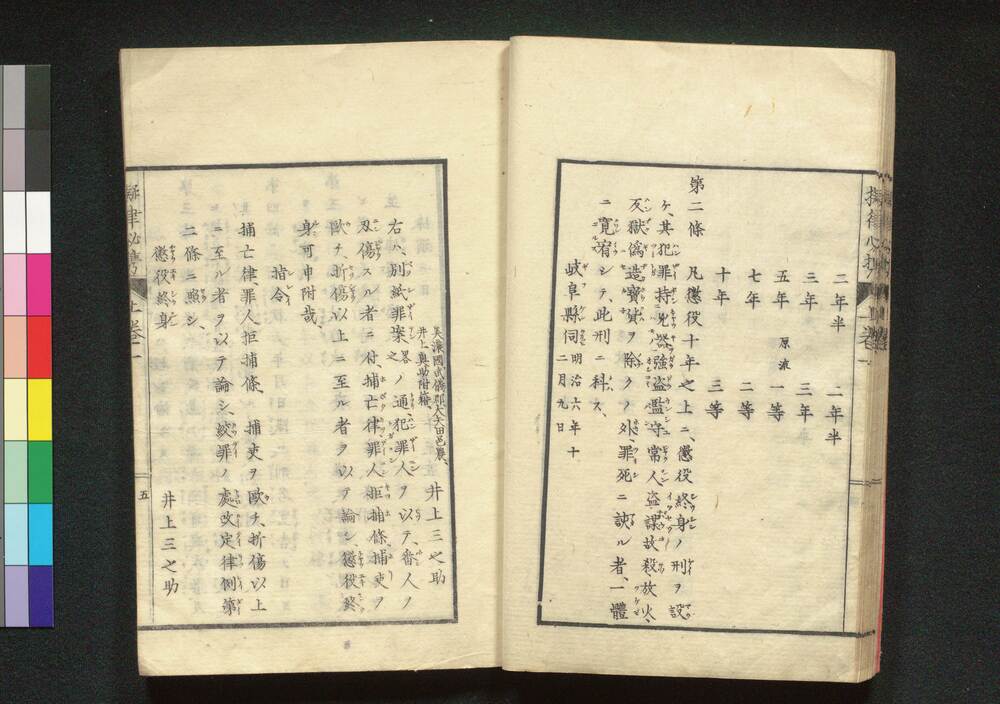 二年半 二年半
三年 三年
五年 原流 一等
七年 二等
十年 三等
第二條 凡懲役十年之上ニ、懲役終身ノ刑ヲ設
ケ、其犯罪持兇器強盗監守常人盗謀故殺放火、
反獄僞造寳貨ヲ除クノ外、罪死ニ該ル者、一體
ニ寛宥シテ、此刑ニ科ス、
岐阜縣伺 明治六年十二月九日
美濃國武儀郡大矢田邑農、
井上與助附籍、
井上三之助
右ハ、別紙罪案之 畧 ノ通犯罪人ヲ以テ、番人ヲ
刄傷スル者ニ付、捕亡律罪人拒捕條、捕吏ヲ
歐チ、折傷以上ニ至ル者ヲ以テ論シ、懲役終
身可申附哉、
指令
捕亡律、罪人拒捕條、捕吏ヲ歐チ、折傷以上
ニ至ル者ヲ以テ論シ、絞罪ノ處改定律例第
二條ニ照シ、
懲役終身 井上三之助
擬律必携 上巻一
五